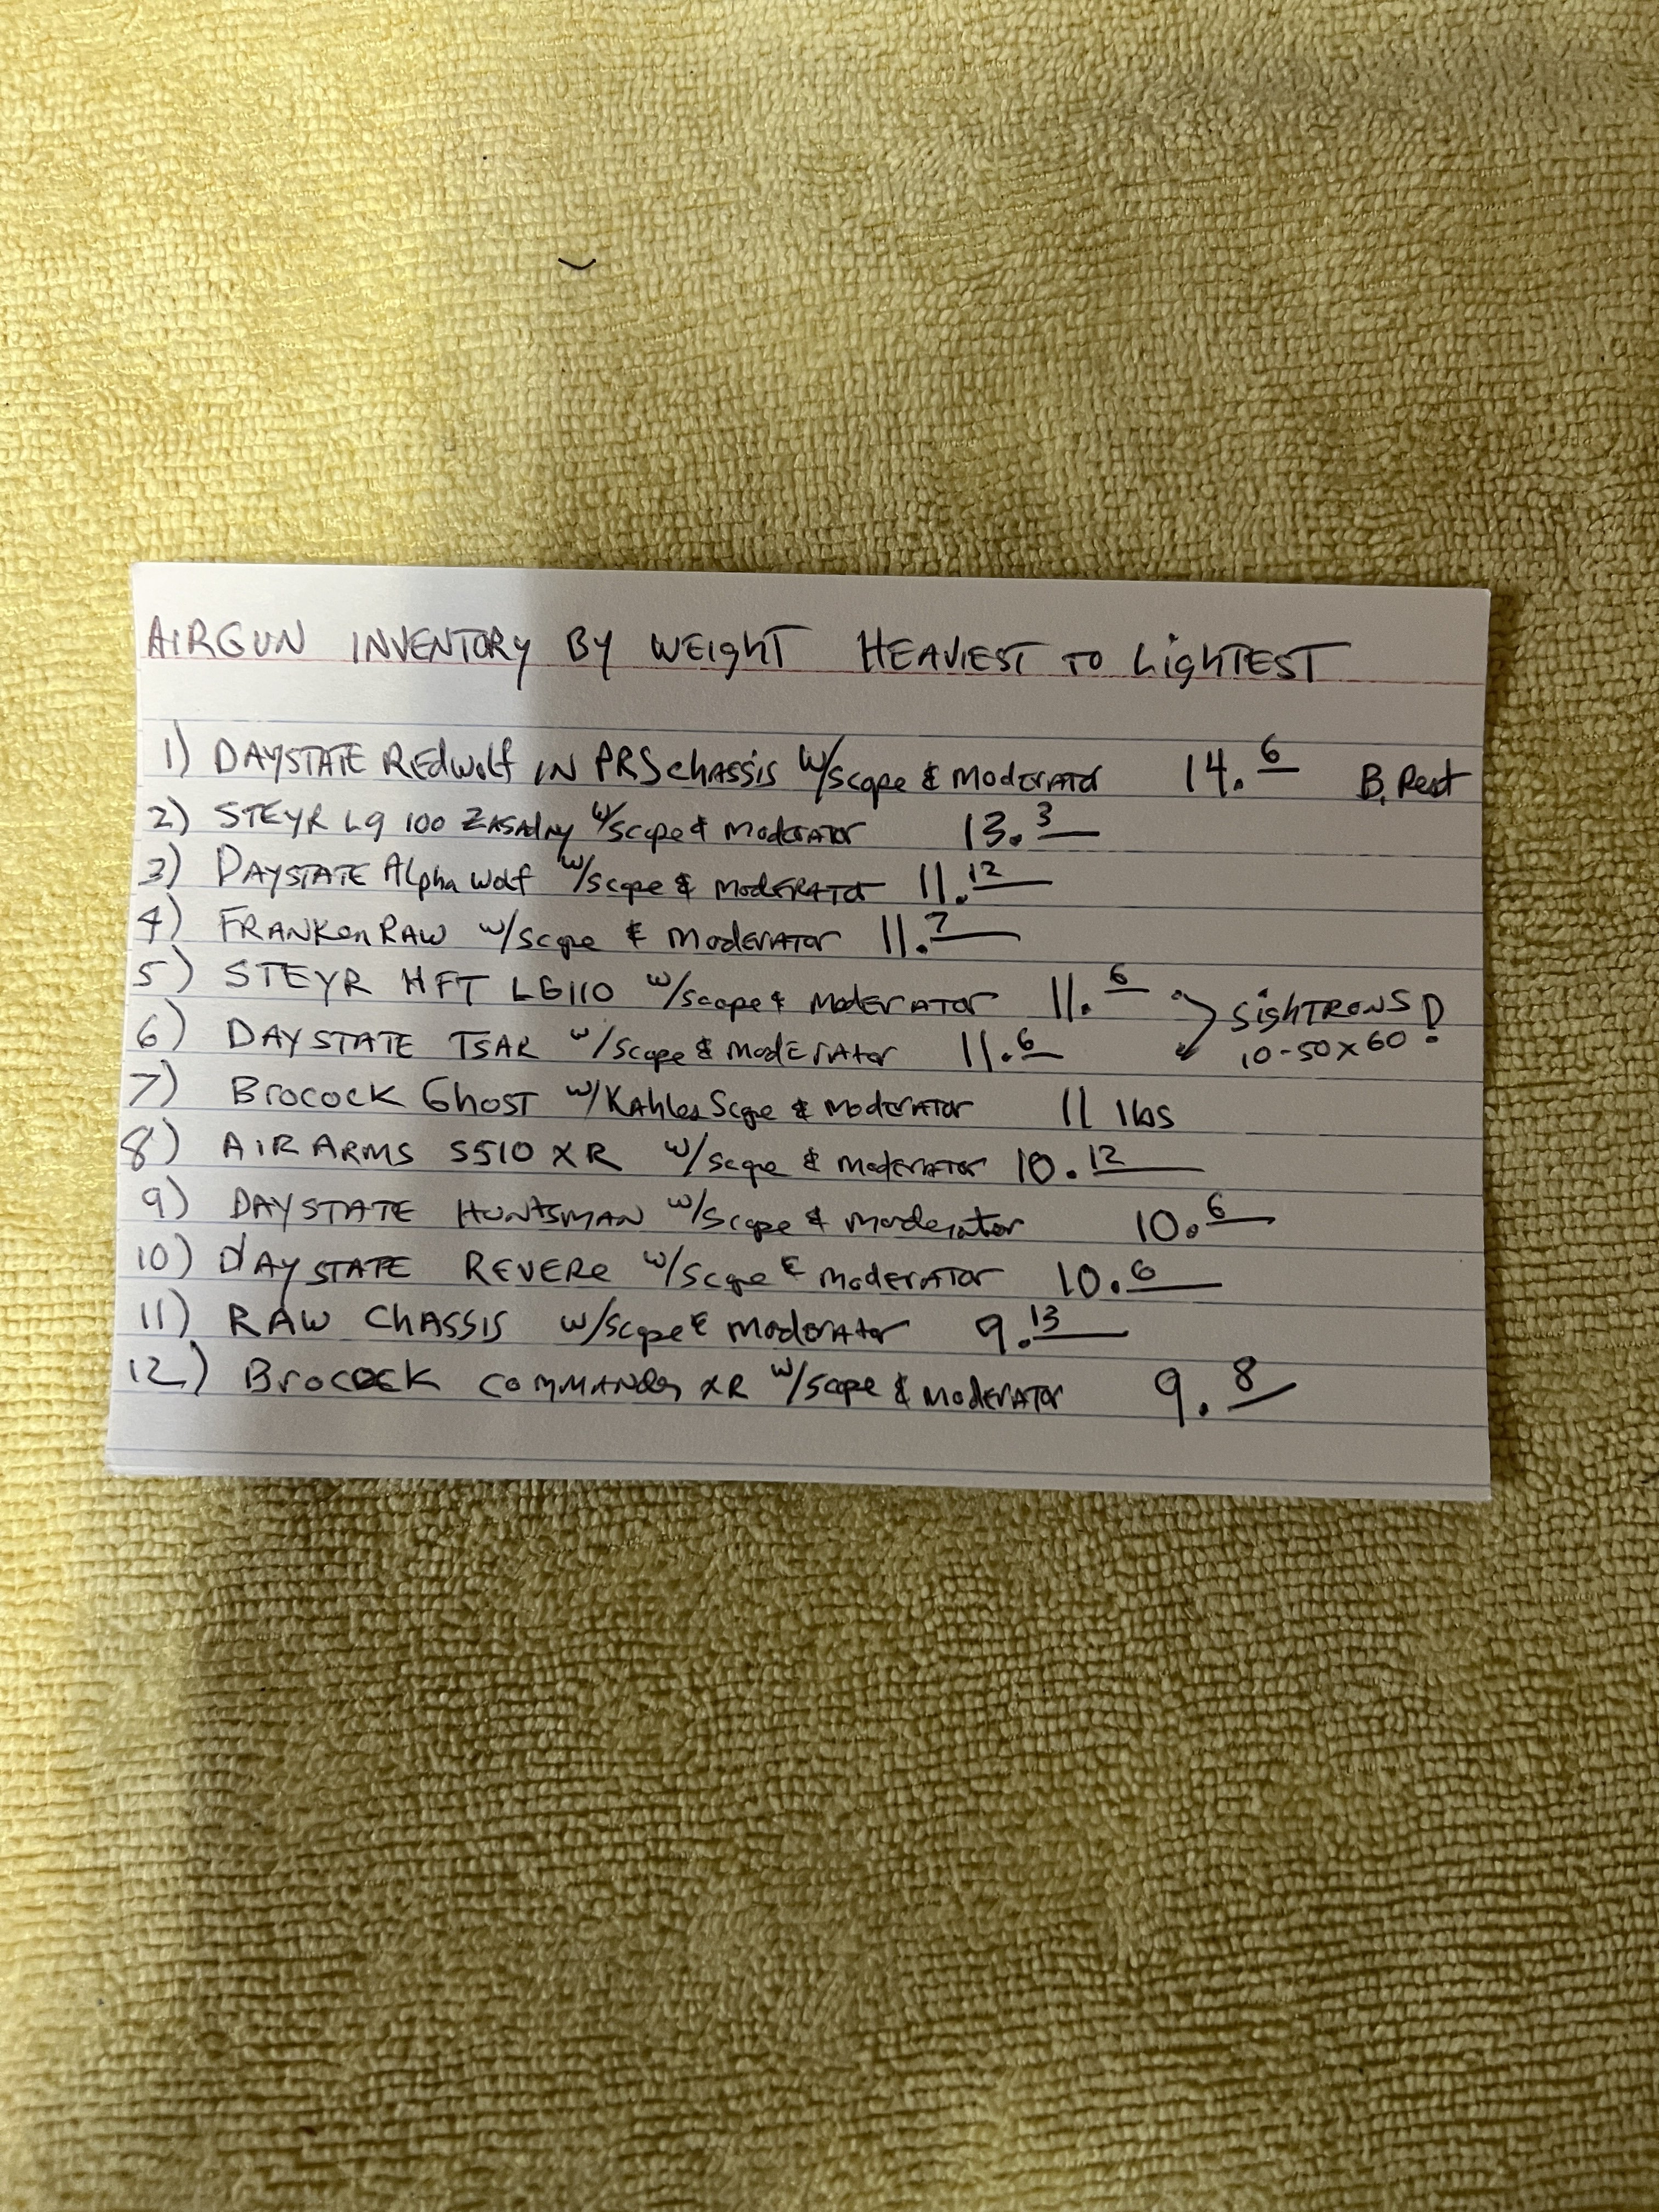 AIRGUN INVENTORY BY WEIGHT HEAVIEST TO LIGHTEST
1) DAYSTATE REdWolf IN PRS chASSIS W/Scope & ModERATOR 14.6 B. Rest
2) STEYR LG 100 ZASADNY W/Scope & ModERATOR 13.3
3) DAYSTATE Alpha Wolf W/Scope & ModERATOR 11.12
4) FRANKen RAW w/Scope & ModERATOR 11.7
5) STEYR HFT LG110 w/Scope & ModERATOR 11.6
6) DAYSTATE TSAR w/Scope & ModERAtor 11.6 SighTRONS!
10-50x60
7) BROCOCK GhOST w/Kahles Scope & ModERATOR 11 lbs
8) AIR ARMS S510 XR w/Scope & ModERATOR 10.12
9) DAYSTATE HUNTSMAN w/Scope & Moderator 10.6
10) dAYSTATE REVERE w/Scope & ModERATOR 10.6
11) RAW ChASSIS w/Scope & ModERAtor 9.13
12) BROCOCK COMMANder XR w/Scope & ModERATOR 9.8